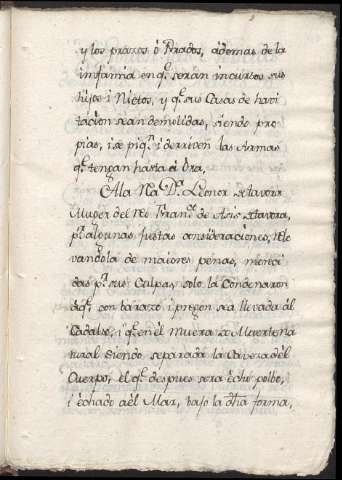 y los prazos ó Prados, ademas de la
infamia en q.e serán incursos sus
hijos i Nietos, y q.e sus Casas de havi
tacion sean demolidas, siendo pro
pias, i se piq.n i derriven las Armas
q.e tengan hasta el dia.
A la Rea D.a Leonor de tavora
Muger del reo Fran.co de Asis de tavora,
p.r algunas justas consideraciones, rele
vandola de maiores penas, mereci
das p.r sus Culpas, solo la Condenaron
á q.e con barazo i pregon sea llevada al
Cadalso, i q.e en él muera de Muerte na
tural siendo separada la Caveza del
Cuerpo, el q.e despues sera echo polbo,
i echado aél Mar, bajo la dha forma,